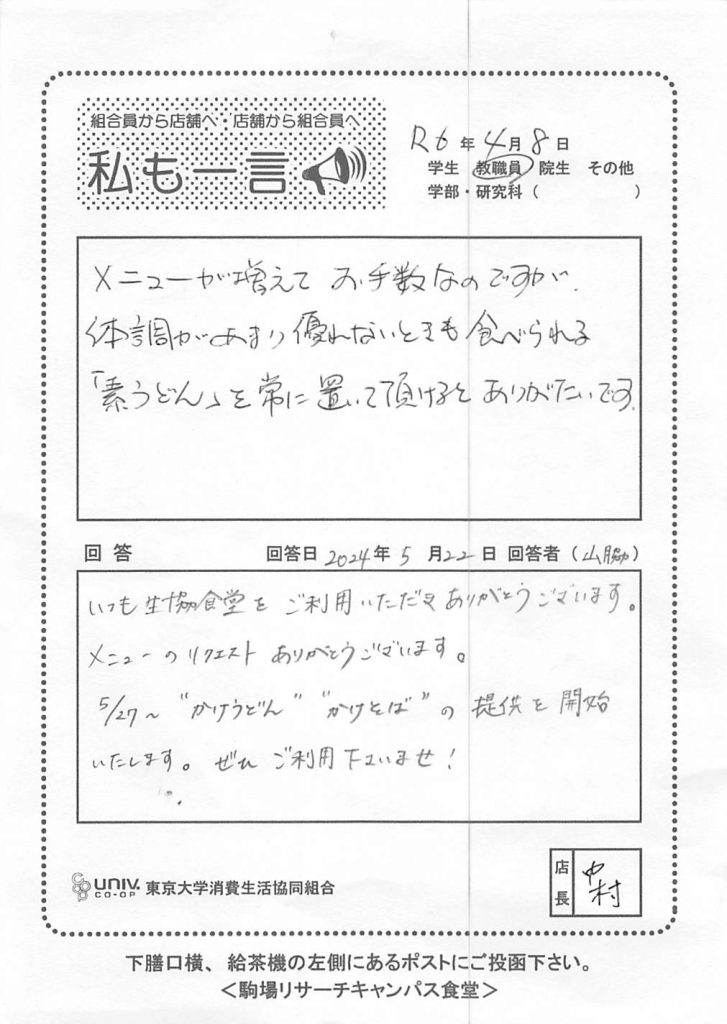 組合員から店舗へ 店舗から組合員へ
私も一言
R6年4月8日
学生 教職員 院生 その他
学部・研究科（ ）
メニューが増えて お手数なのですが、
体調があまり優れないときも食べられる
「素うどん」を常に置いて頂けるとありがたいです。
回答 回答日2024年5月22日 回答者（山脇）
いつも生協食堂を ご利用いただき ありがとうございます。
メニューのリクエスト ありがとうございます。
5/27〜 "かけうどん" "かけそば"の 提供を開始
いたします。 ぜひ ご利用下さいませ！
店長 中村
CO-OP UNIV. CO-OP 東京大学消費生活協同組合
下膳口横、給茶機の左側にあるポストにご投函下さい。
＜駒場リサーチキャンパス食堂＞